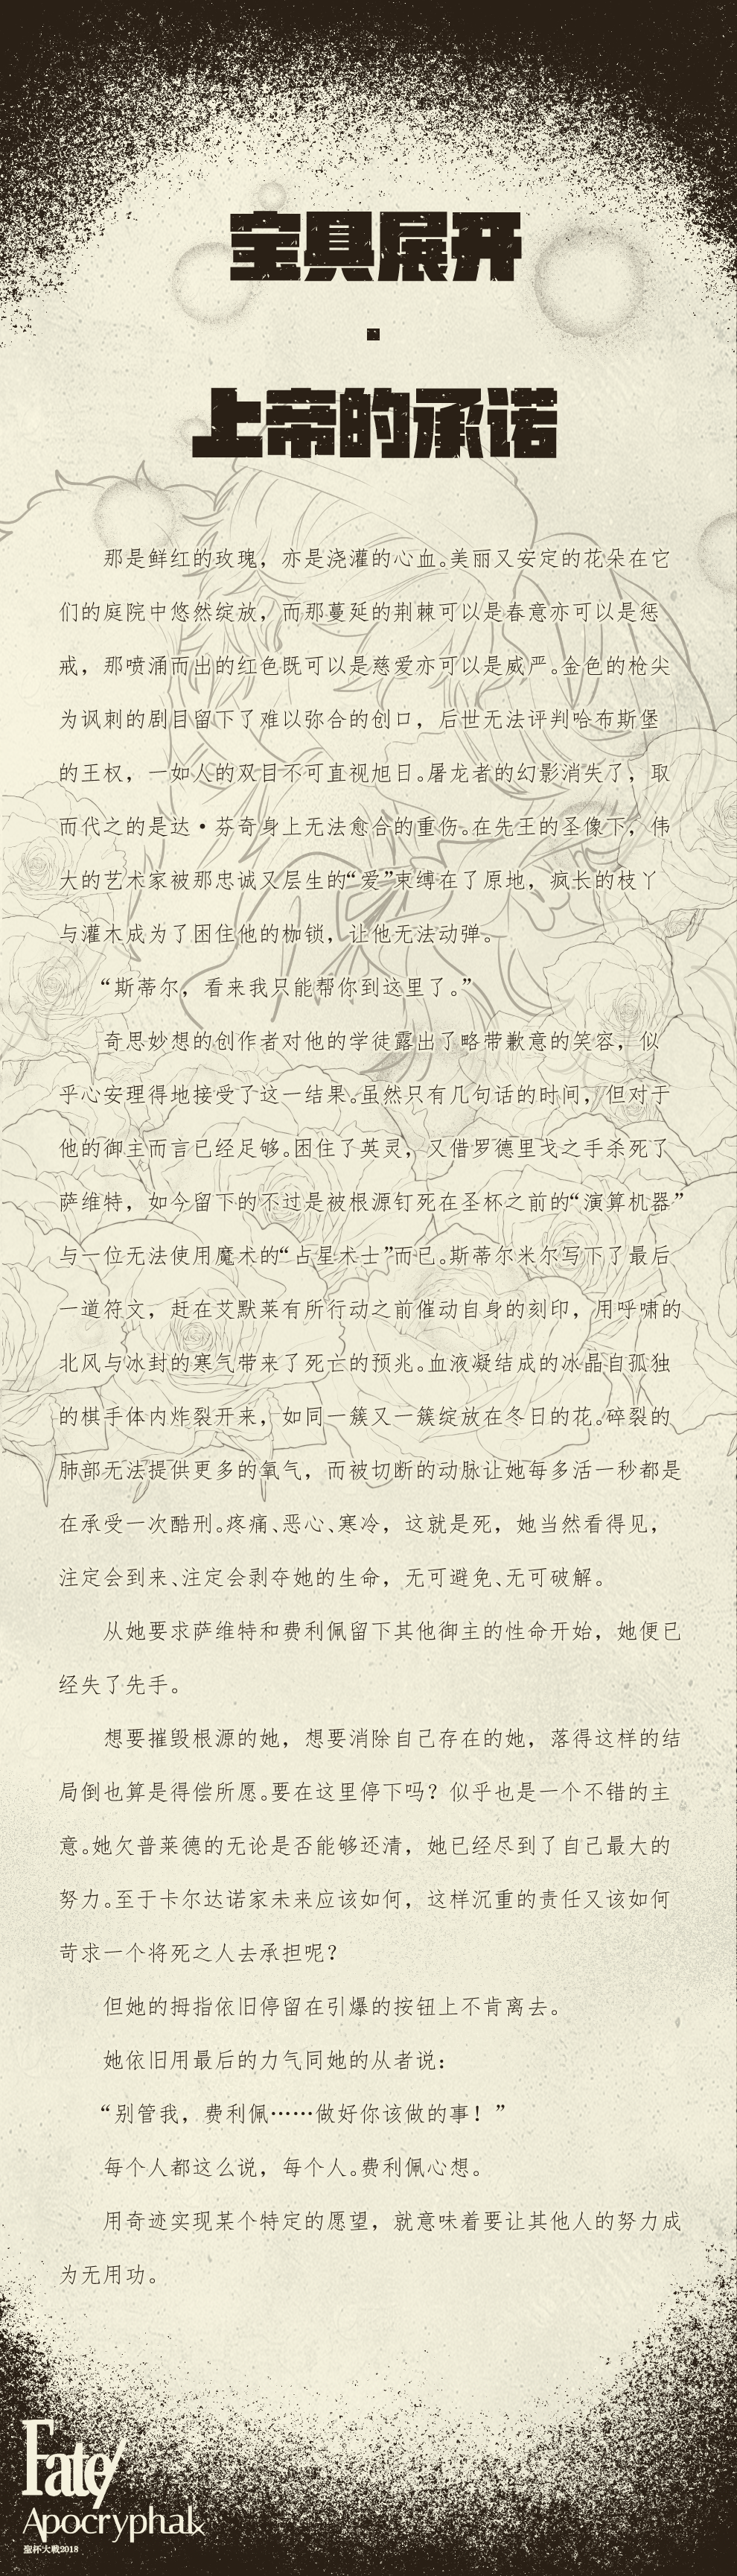 宝具展开
·
上帝的承诺
那是鲜红的玫瑰，亦是浇灌的心血。美丽又安定的花朵在它
们的庭院中悠然绽放，而那蔓延的荆棘可以是春意亦可以是惩
戒，那喷涌而出的红色既可以是慈爱亦可以是威严。金色的枪尖
为讽刺的剧目留下了难以弥合的创口，后世无法评判哈布斯堡
的王权，一如人的双目不可直视旭日。屠龙者的幻影消失了，取
而代之的是达·芬奇身上无法愈合的重伤。在先王的圣像下，伟
大的艺术家被那忠诚又层生的“爱”束缚在了原地，疯长的枝丫
与灌木成为了困住他的枷锁，让他无法动弹。
“斯蒂尔，看来我只能帮你到这里了。”
奇思妙想的创作者对他的学徒露出了略带歉意的笑容，似
乎心安理得地接受了这一结果。虽然只有几句话的时间，但对于
他的御主而言已经足够。困住了英灵，又借罗德里戈之手杀死了
萨维特，如今留下的不过是被根源钉死在圣杯之前的“演算机器”
与一位无法使用魔术的“占星术士”而已。斯蒂尔米尔写下了最后
一道符文，赶在艾默莱有所行动之前催动自身的刻印，用呼啸的
北风与冰封的寒气带来了死亡的预兆。血液凝结成的冰晶自孤独
的棋手体内炸裂开来，如同一簇又一簇绽放在冬日的花。碎裂的
肺部无法提供更多的氧气，而被切断的动脉让她每多活一秒都是
在承受一次酷刑。疼痛、恶心、寒冷，这就是死，她当然看得见，
注定会到来、注定会剥夺她的生命，无可避免、无可破解。
从她要求萨维特和费利佩留下其他御主的性命开始，她便已
经失了先手。
想要摧毁根源的她，想要消除自己存在的她，落得这样的结
局倒也算是得偿所愿。要在这里停下吗？似乎也是一个不错的主
意。她欠普莱德的无论是否能够还清，她已经尽到了自己最大的
努力。至于卡尔达诺家未来应该如何，这样沉重的责任又该如何
苛求一个将死之人去承担呢？
但她的拇指依旧停留在引爆的按钮上不肯离去。
她依旧用最后的力气同她的从者说：
“别管我，费利佩……做好你该做的事！”
每个人都这么说，每个人。费利佩心想。
用奇迹实现某个特定的愿望，就意味着要让其他人的努力成
为无用功。
Fate/
Apocryphal
聖杯大戦2018